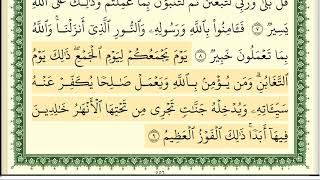 قُلْ بَلَىٰ وَرَبِّى لَتُبْعَثُنَّ ثُمَّ لَتُنَبَّؤُنَّ بِمَا عَمِلْتُمْ وَذَٰلِكَ عَلَى ٱللَّهِ
يَسِيرٌ ٧ فَـَٔامِنُوا۟ بِٱللَّهِ وَرَسُولِهِۦ وَٱلنُّورِ ٱلَّذِىٓ أَنزَلْنَا وَٱللَّهُ
بِمَا تَعْمَلُونَ خَبِيرٌ ٨ يَوْمَ يَجْمَعُكُمْ لِيَوْمِ ٱلْجَمْعِ ذَٰلِكَ يَوْمُ
ٱلتَّغَابُنِ وَمَن يُؤْمِنۢ بِٱللَّهِ وَيَعْمَلْ صَـٰلِحًا يُكَفِّرْ عَنْهُ
سَيِّـَٔاتِهِۦ وَيُدْخِلْهُ جَنَّـٰتٍ تَجْرِى مِن تَحْتِهَا ٱلْأَنْهَـٰرُ خَـٰلِدِينَ
فِيهَآ أَبَدًا ذَٰلِكَ ٱلْفَوْزُ ٱلْعَظِيمُ ٩
٥٥٦